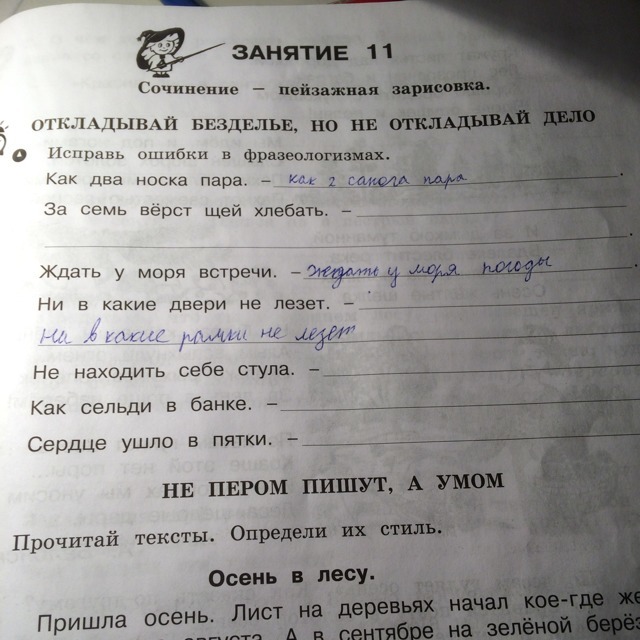 ЗАНЯТИЕ 11
Сочинение – пейзажная зарисовка.
ОТКЛАДЫВАЙ БЕЗДЕЛЬЕ, НО НЕ ОТКЛАДЫВАЙ ДЕЛО
Исправь ошибки в фразеологизмах.
Как два носка пара. – как 2 сапога пара.
За семь вёрст щей хлебать. –
Ждать у моря встречи. – Ждать у моря погоды.
Ни в какие двери не лезет. –
Ни в какие рамки не лезет
Не находить себе стула. –
Как сельди в банке. –
Сердце ушло в пятки. –
НЕ ПЕРОМ ПИШУТ, А УМОМ
Прочитай тексты. Определи их стиль.
Осень в лесу.
Пришла осень. Лист на деревьях начал кое-где
августа. А в сентябре на зелёной